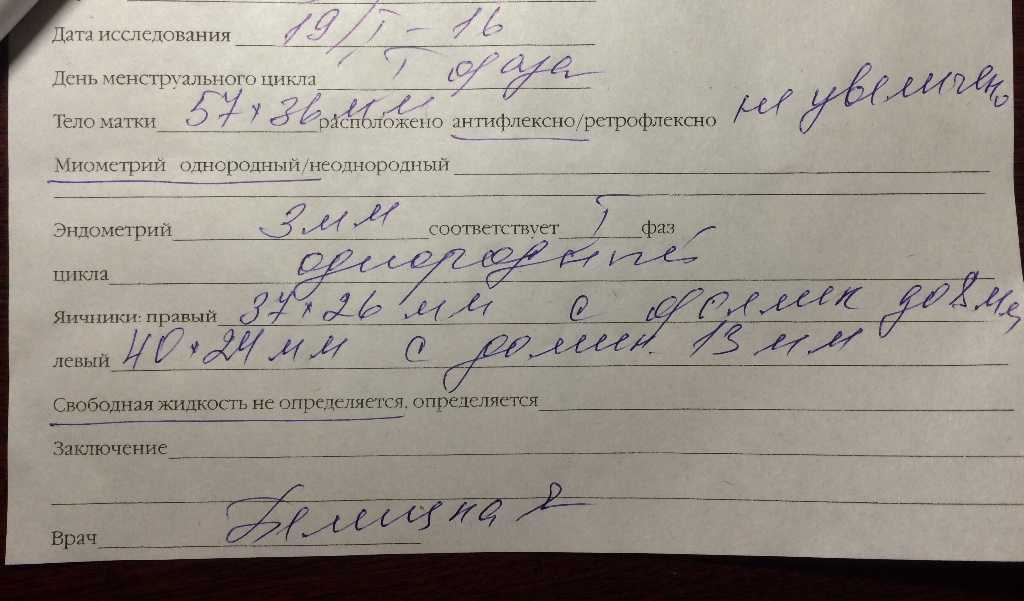 Дата исследования 19/I - 16
День менструального цикла I фаза
Тело матки 57 × 36 мм расположено антифлексно/ретрофлексно не увеличено
Миометрий однородный/неоднородный
Эндометрий 3 мм соответствует I фаз
цикла однородный
Яичники: правый 37 × 26 мм с фоллик до 8 мм
левый 40 × 24 мм с домин. 13 мм
Свободная жидкость не определяется, определяется
Заключение
Врач